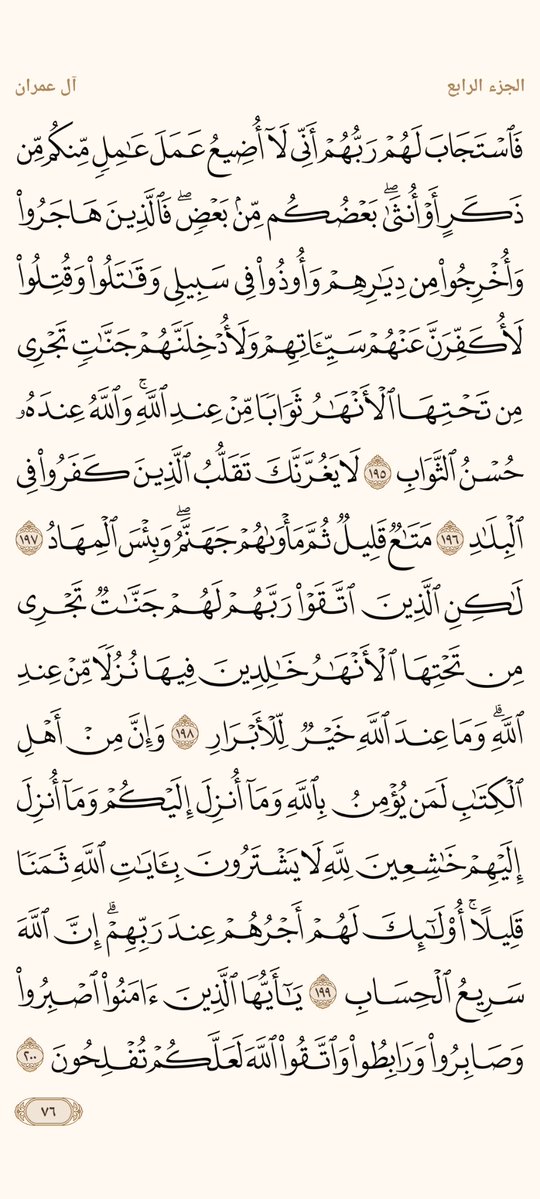 الجزء الرابع
آل عمران
فَٱسۡتَجَابَ لَهُمۡ رَبُّهُمۡ أَنِّي لَآ أُضِيعُ عَمَلَ عَٰمِلٖ مِّنكُم مِّن
ذَكَرٍ أَوۡ أُنثَىٰۖ بَعۡضُكُم مِّنۢ بَعۡضٖۖ فَٱلَّذِينَ هَاجَرُواْ
وَأُخۡرِجُواْ مِن دِيَٰرِهِمۡ وَأُوذُواْ فِي سَبِيلِي وَقَٰتَلُواْ وَقُتِلُواْ
لَأُكَفِّرَنَّ عَنۡهُمۡ سَيِّـَٔاتِهِمۡ وَلَأُدۡخِلَنَّهُمۡ جَنَّٰتٖ تَجۡرِي
مِن تَحۡتِهَا ٱلۡأَنۡهَٰرُ ثَوَابٗا مِّنۡ عِندِ ٱللَّهِۚ وَٱللَّهُ عِندَهُۥ
حُسۡنُ ٱلثَّوَابِ ١٩٥ لَا يَغُرَّنَّكَ تَقَلُّبُ ٱلَّذِينَ كَفَرُواْ فِي
ٱلۡبِلَٰدِ ١٩٦ مَتَٰعٞ قَلِيلٞ ثُمَّ مَأۡوَىٰهُمۡ جَهَنَّمُۖ وَبِئۡسَ ٱلۡمِهَادُ ١٩٧
لَٰكِنِ ٱلَّذِينَ ٱتَّقَوۡاْ رَبَّهُمۡ لَهُمۡ جَنَّٰتٞ تَجۡرِي
مِن تَحۡتِهَا ٱلۡأَنۡهَٰرُ خَٰلِدِينَ فِيهَا نُزُلٗا مِّنۡ عِندِ
ٱللَّهِۗ وَمَا عِندَ ٱللَّهِ خَيۡرٞ لِّلۡأَبۡرَارِ ١٩٨ وَإِنَّ مِنۡ أَهۡلِ
ٱلۡكِتَٰبِ لَمَن يُؤۡمِنُ بِٱللَّهِ وَمَآ أُنزِلَ إِلَيۡكُمۡ وَمَآ أُنزِلَ
إِلَيۡهِمۡ خَٰشِعِينَ لِلَّهِ لَا يَشۡتَرُونَ بِـَٔايَٰتِ ٱللَّهِ ثَمَنٗا
قَلِيلًاۚ أُوْلَٰٓئِكَ لَهُمۡ أَجۡرُهُمۡ عِندَ رَبِّهِمۡۗ إِنَّ ٱللَّهَ
سَرِيعُ ٱلۡحِسَابِ ١٩٩ يَٰٓأَيُّهَا ٱلَّذِينَ ءَامَنُواْ ٱصۡبِرُواْ
وَصَابِرُواْ وَرَابِطُواْ وَٱتَّقُواْ ٱللَّهَ لَعَلَّكُمۡ تُفۡلِحُونَ ٢٠٠
٧٦